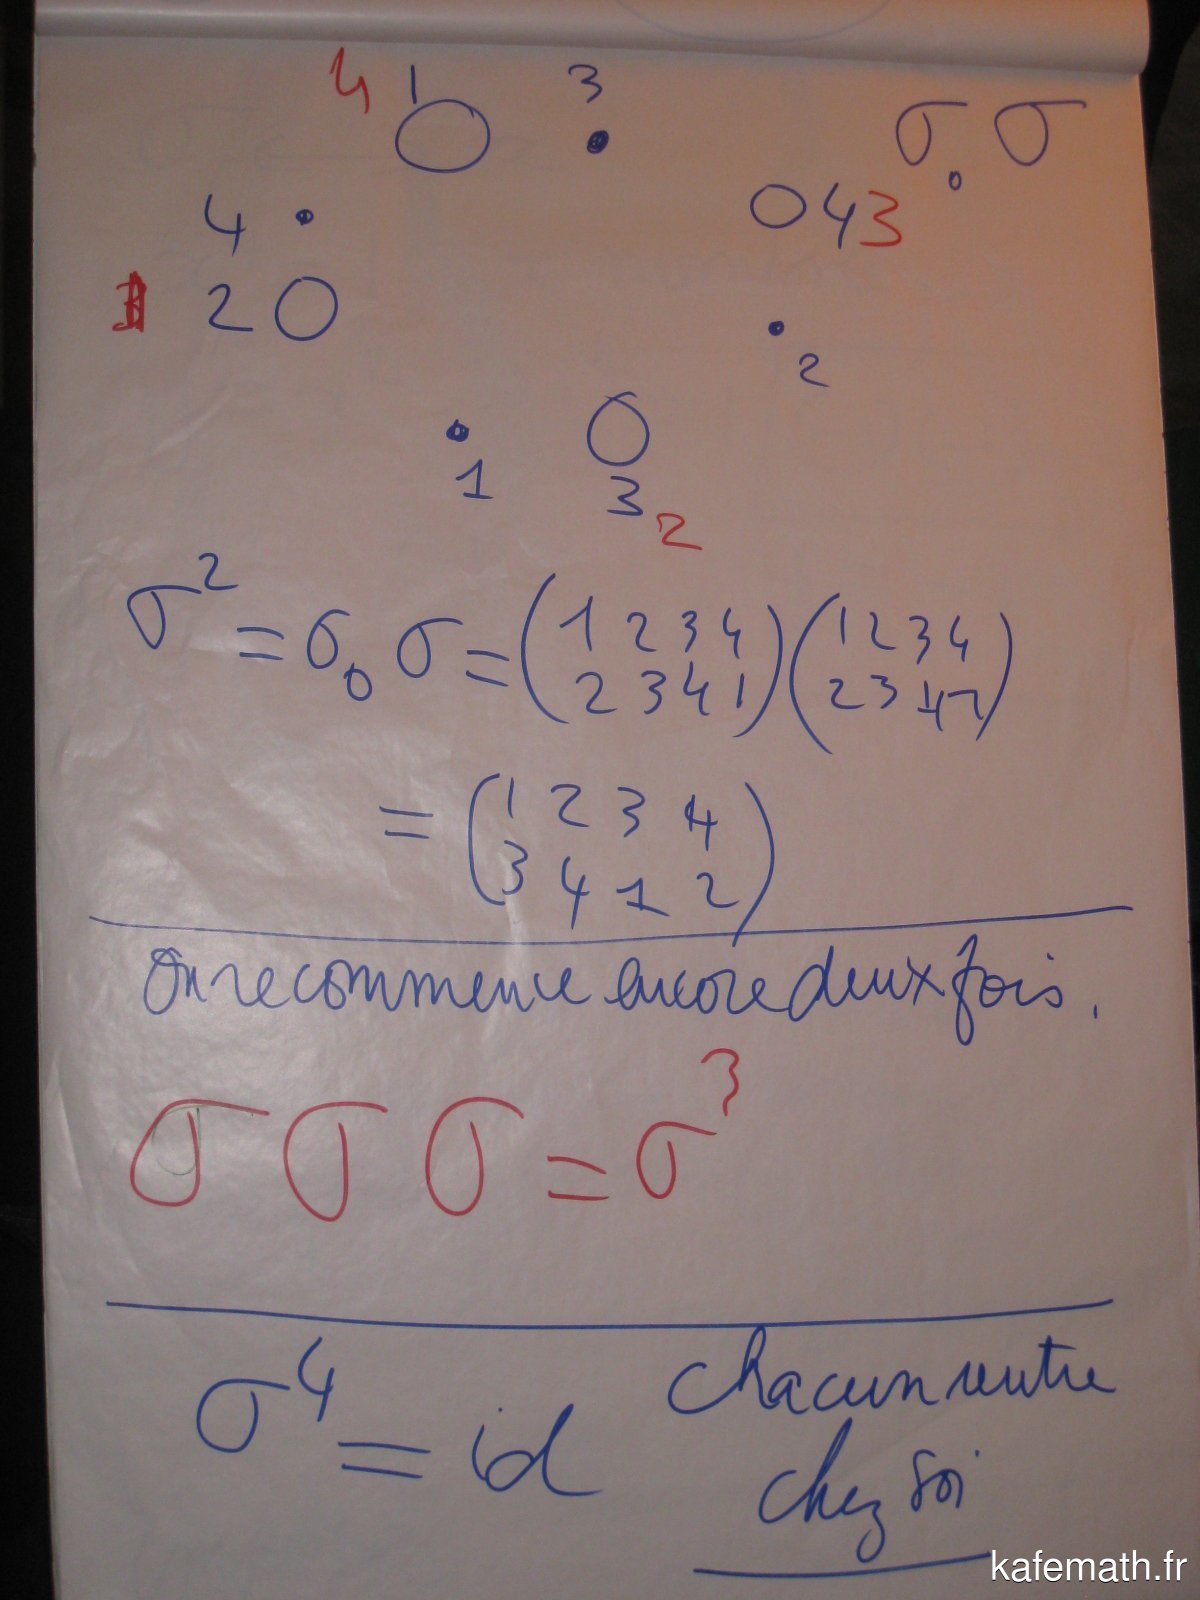 4 1 3
σ∘σ
4 43
1 2
2
1 3
2
σ² = σ∘σ = (1 2 3 4) (1 2 3 4)
(2 3 4 1) (2 3 4 1)
= (1 2 3 4)
(3 4 1 2)
On recommence encore deux fois.
σ σ σ = σ³
σ⁴ = id chacun rentre
chez soi
kafemath.fr